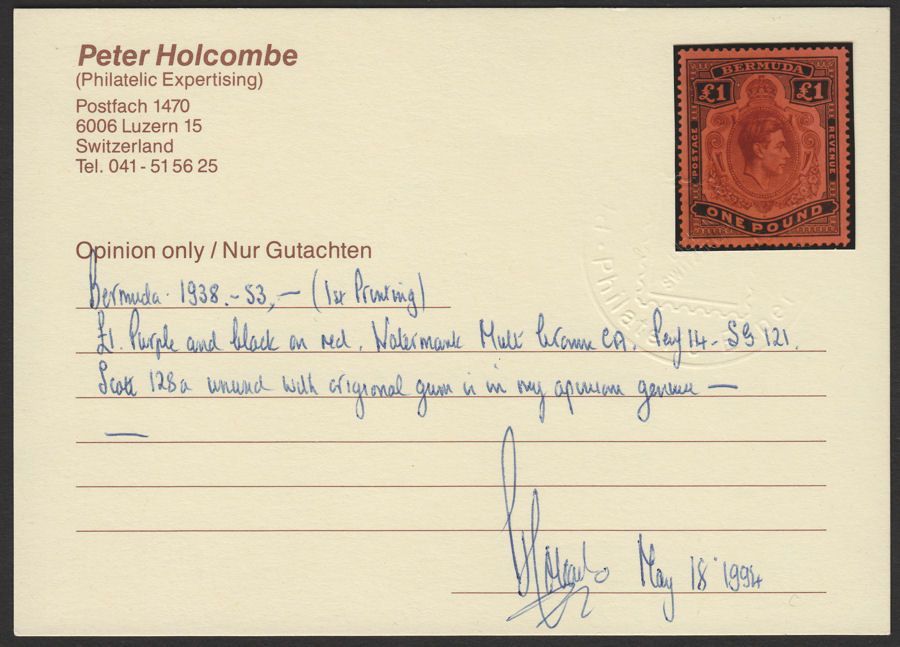 Peter Holcombe
(Philatelic Expertising)
Postfach 1470
6006 Luzern 15
Switzerland
Tel. 041 - 51 56 25
BERMUDA
£1 £1
POSTAGE REVENUE
ONE POUND
Opinion only / Nur Gutachten
Bermuda. 1938.-53,— (1st Printing)
£1. Purple and black on red. Watermark Mult Crown CA. Perf 14. SG 121.
Scott 128a unused with origional gum is in my opinion genuine —
—
May 18 1994